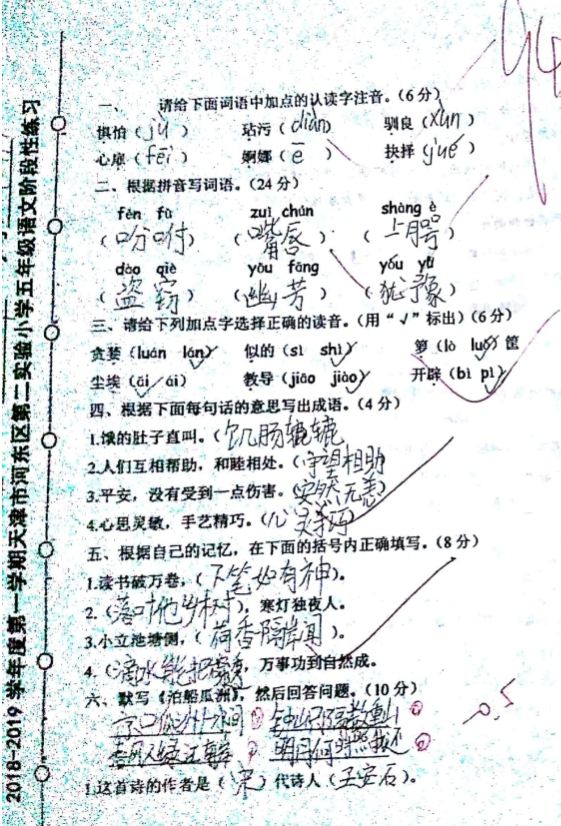 2018-2019 学年度第一学期天津市河东区第二实验小学五年级语文阶段性练习
94
一、 请给下面词语中加点的认读字注音。（6 分）
惧怕（jù） 玷污（diàn） 驯良（xùn）
心扉（fēi） 婀娜（ē） 抉择（jué）
二、根据拼音写词语。（24 分）
fēn fù zuǐ chún shàng è
（吩咐）（嘴唇）（上腭）
dào qiè yōu fāng yóu yù
（盗窃）（幽芳）（犹豫）
三、请给下列加点字选择正确的读音。（用“√”标出）（6 分）
贪婪（luán lán√） 似的（sì shì√） 箩（lò luó√）筐
尘埃（āi√ ái） 教导（jiāo jiào√） 开辟（bì pì√）
四、根据下面每句话的意思写出成语。（4 分）
1.饿的肚子直叫。（饥肠辘辘
2.人们互相帮助，和睦相处。（守望相助
3.平安，没有受到一点伤害。（安然无恙）
4.心思灵敏，手艺精巧。（心灵手巧
五、根据自己的记忆，在下面的括号内正确填写。（8 分）
1.读书破万卷，（下笔如有神）。
2.（落叶他乡树），寒灯独夜人。
3.小立池塘侧，（荷香隔岸闻）。
4.（滴水能把石穿，万事功到自然成。
六、默写《泊船瓜洲》，然后回答问题。（10 分）
京口瓜洲一水间 钟山只隔数重山
春风又绿江南岸 明月何时照我还
-0.5
1.这首诗的作者是（宋）代诗人（王安石）。